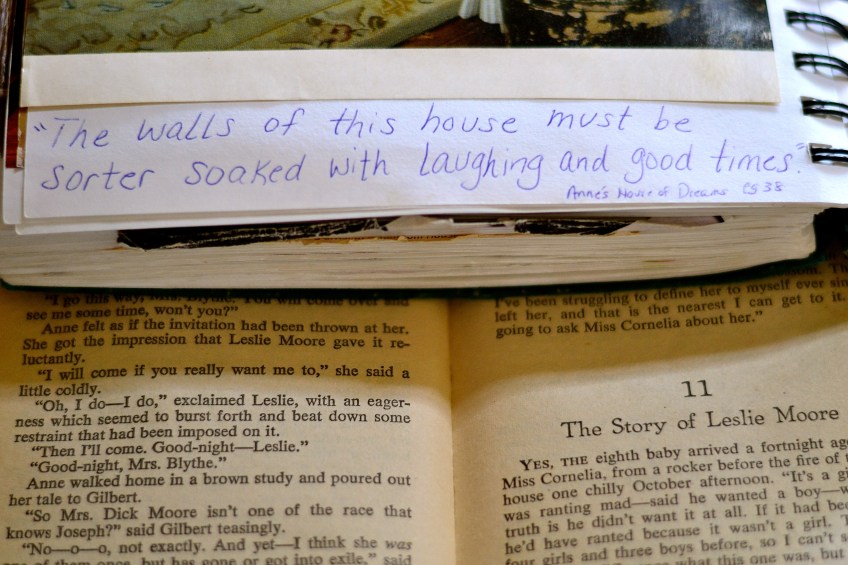 "The walls of this house must be
sorter soaked with laughing and good times."
Anne's House of Dreams pg 38
"I go this way, Mrs. Blythe. You will come over and
see me some time, won't you?"
Anne felt as if the invitation had been thrown at her.
She got the impression that Leslie Moore gave it re-
luctantly.
"I will come if you really want me to," she said a
little coldly.
"Oh, I do—I do," exclaimed Leslie, with an eager-
ness which seemed to burst forth and beat down some
restraint that had been imposed on it.
"Then I'll come. Good-night—Leslie."
"Good-night, Mrs. Blythe."
Anne walked home in a brown study and poured out
her tale to Gilbert.
"So Mrs. Dick Moore isn't one of the race that
knows Joseph?" said Gilbert teasingly.
"No—o—o, not exactly. And yet—I think she was
one of them once, but has gone or got into exile," said
I've been struggling to define her to myself ever sin
left her, and that is the nearest I can get to it.
going to ask Miss Cornelia about her."
11
The Story of Leslie Moore
YES, THE eighth baby arrived a fortnight ag
Miss Cornelia, from a rocker before the fire of t
house one chilly October afternoon. "It's a gi
was ranting mad—said he wanted a boy—w
truth is he didn't want it at all. If it had bee
he'd have ranted because it wasn't a girl. T
four girls and three boys before, so I can't s
what this one was, but